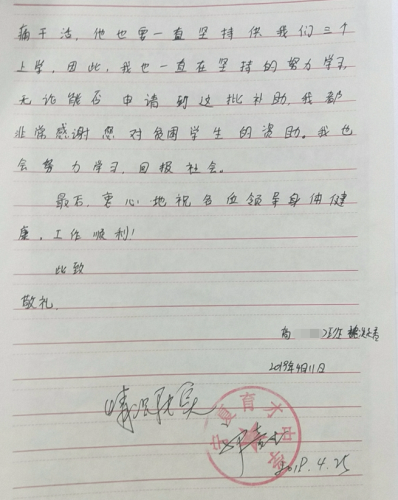 痛干活，他也要一直坚持供我们三个
上学，因此，我也一直在坚持的努力学习，
无论能否申请到这批补助，我都
非常感谢您对贫困学生的资助。我也
会努力学习，回报社会。
最后，衷心地祝各位领导身体健
康，工作顺利！
此致
敬礼.
高
班
2018年4月11日
情况属实
育才中学
2018.4.25